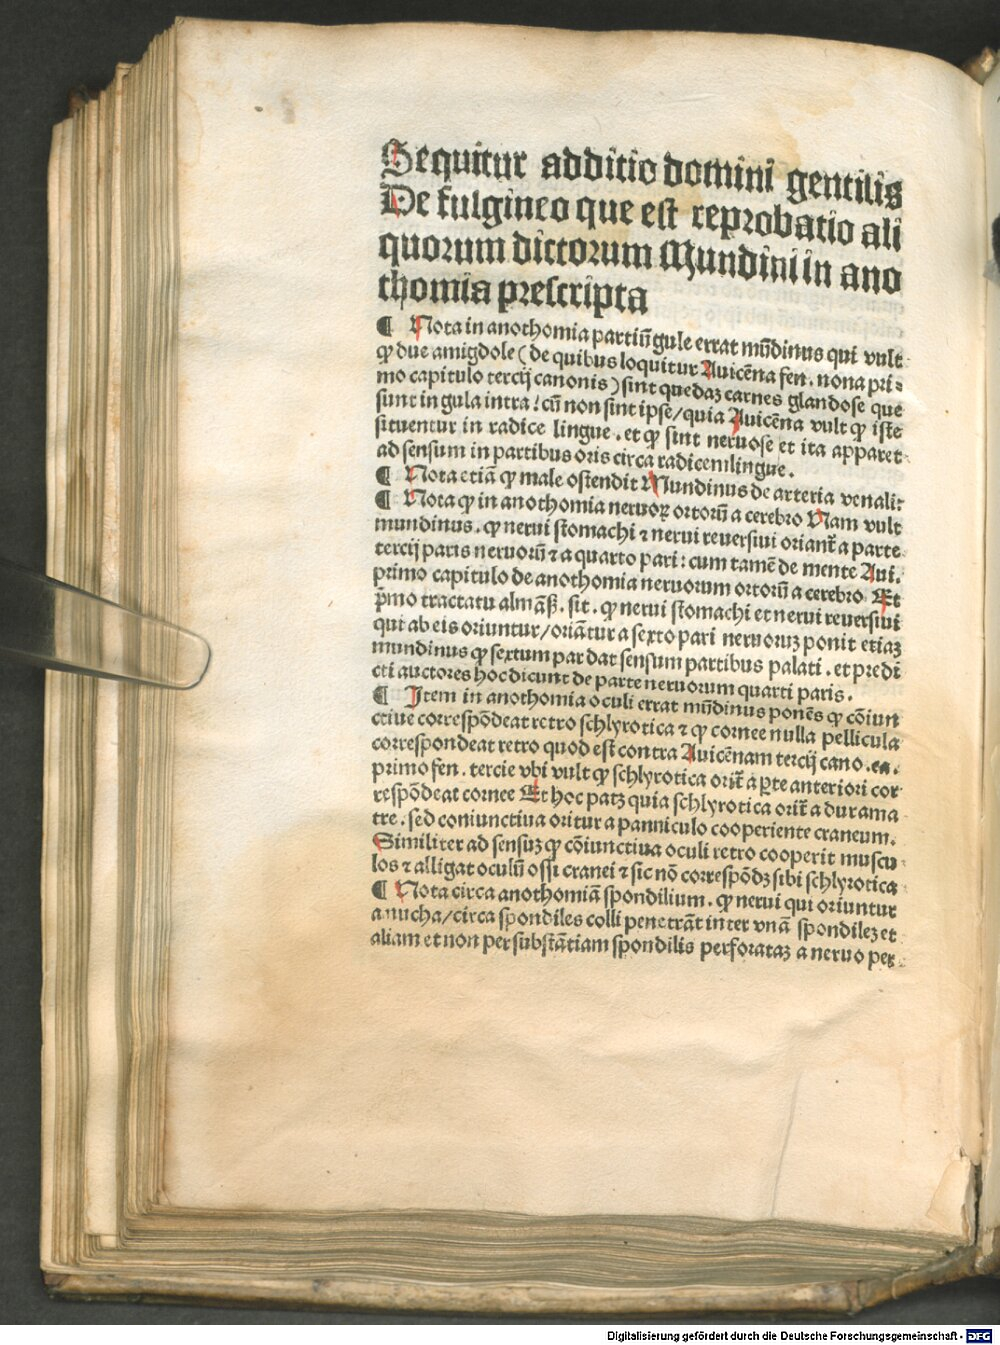 Sequitur additio domini gentilis
De fulgineo que est reprobatio ali
quorum dictorum Mundini in ano
thomia prescripta
¶ Nota in anothomia partiū gule errat mūdinus qui vult
ꝙ due amigdole (de quibus loquitur Auicēna fen. nona pri⸗
mo capitulo tercij canonis) sint quedaꝫ carnes glandose que
sunt in gula intra: cū non sint ipse/quia Auicēna vult ꝙ iste
situentur in radice lingue. et ꝙ sint neruose et ita apparet
ad sensum in partibus oris circa radicem lingue.
¶ Nota etiā ꝙ male ostendit Mundinus de arteria venali:
¶ Nota ꝙ in anothomia neruoꝝ ortorū a cerebro Nam vult
mundinus. ꝙ nerui stomachi ⁊ nerui reuersiui oriant̄ a parte
tercij paris neruorū ⁊ a quarto pari: cum tamē de mente Aui.
primo capitulo de anothomia neruorum ortorū a cerebro Et
p̄mo tractatu almāß. sit. ꝙ nerui stomachi et nerui reuersiui
qui ab eis oriuntur/oriātur a sexto pari neruoruꝫ ponit etiaꝫ
mundinus ꝙ sextum par dat sensum partibus palati. et predi
cti auctores hoc dicunt de parte neruorum quarti paris.
¶ Item in anothomia oculi errat mūdinus ponēs ꝙ cōiun
ctiue correspōdeat retro schlyrotica ⁊ ꝙ cornee nulla pellicula
correspondeat retro quod est contra Auicēnam tercij cano. ca.
primo fen. tercie vbi vult ꝙ schlyrotica orit̄ a ꝑte anteriori cor
respōdeat cornee Et hoc patꝫ quia schlyrotica orit̄ a dura ma
tre. sed coniunctiua oritur a panniculo cooperiente craneum.
Similiter ad sensuꝫ ꝙ cōiunctiua oculi retro cooperit muscu
los ⁊ alligat oculū ossi cranei ⁊ sic nō correspōdꝫ sibi schlyrotica
¶ Nota circa anothomiā spondilium. ꝙ nerui qui oriuntur
a nucha/circa spondiles colli penetrāt inter vnā spondileꝫ et
aliam et non per substātiam spondilis perforataꝫ a neruo per
Digitalisierung gefördert durch die Deutsche Forschungsgemeinschaft - DFG